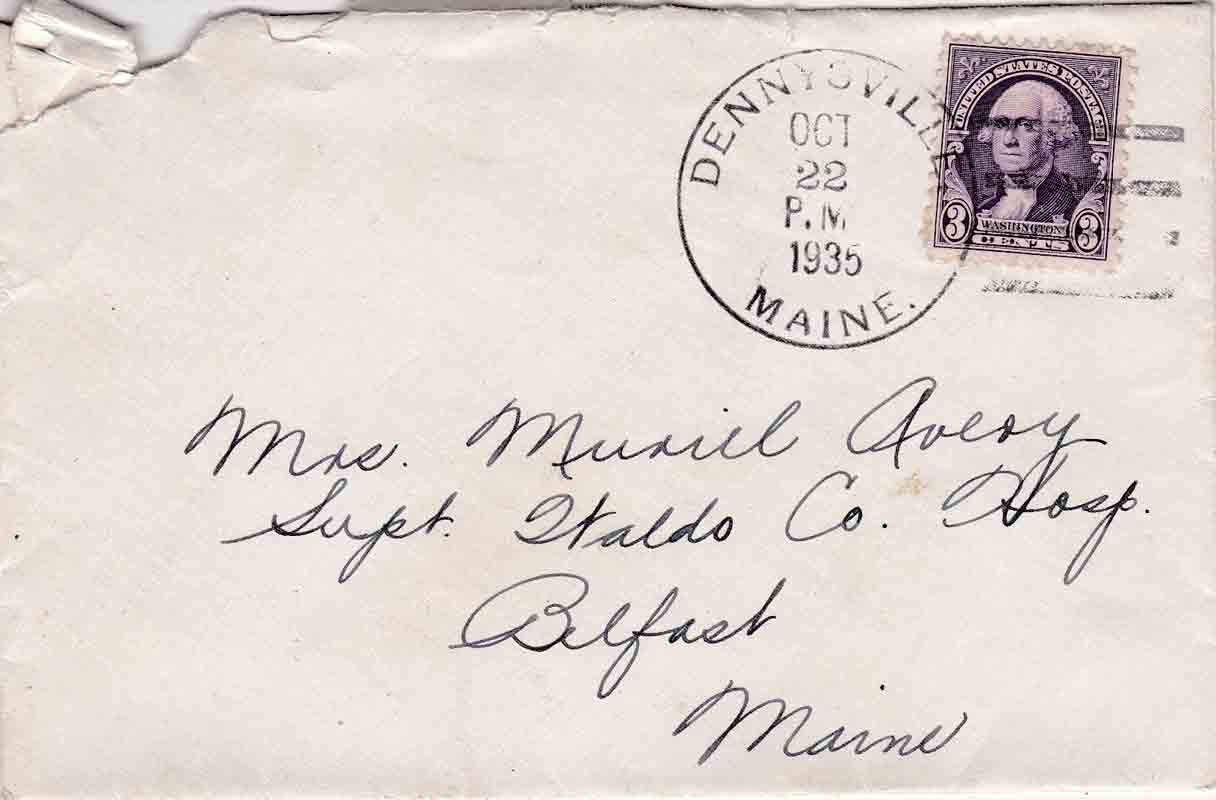 DENNYSVILLE
OCT
22
P.M
1935
MAINE.
UNITED STATES POSTAGE
3 WASHINGTON 3
CENTS
Mrs. Muriel Avery
Supt. Waldo Co. Hosp.
Belfast
Maine